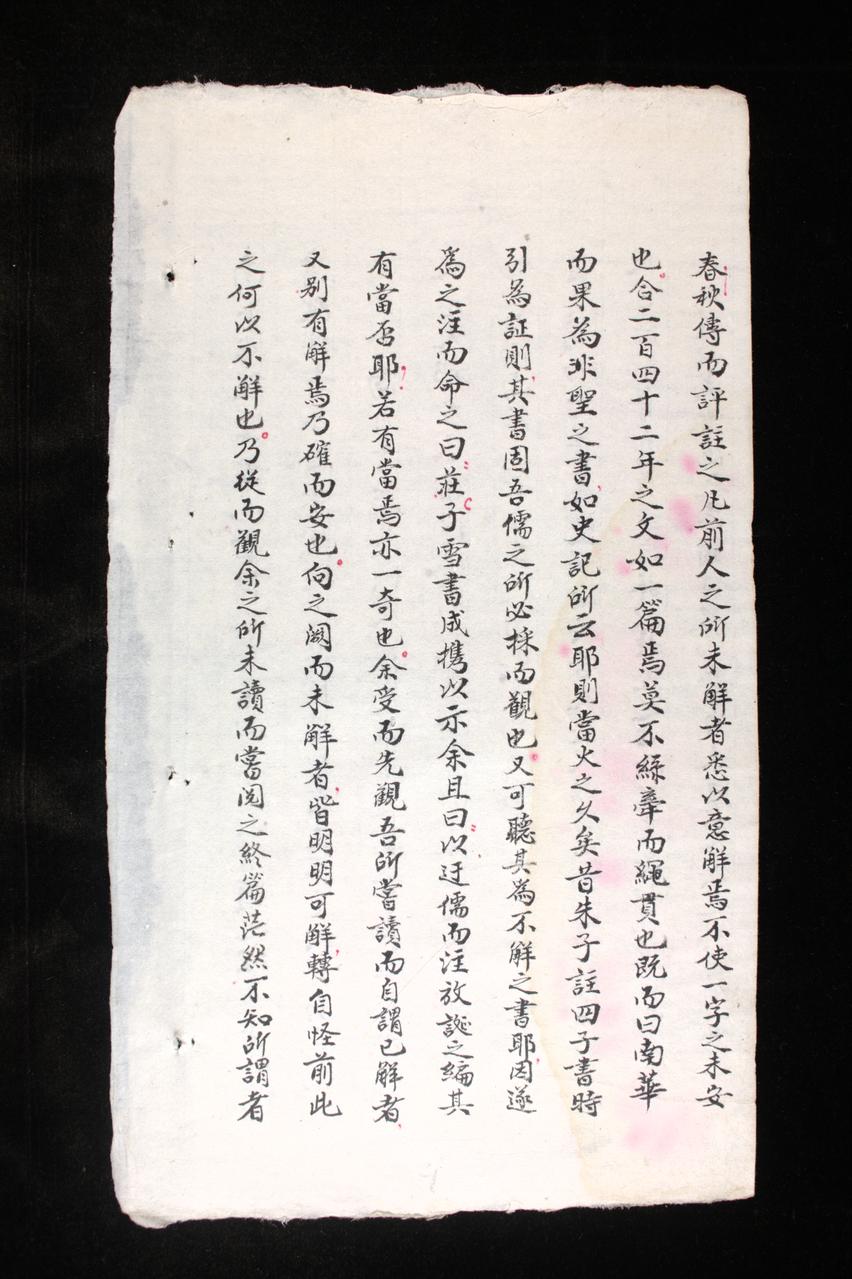 春秋傳而評註之凡前人之所未解者悉以意解焉不使一字之未安
也合二百四十二年之文如一篇焉莫不絲牽而繩貫也既而曰南華
而果為非聖之書如史記所云耶則當火之久矣昔朱子註四子書時
引為証則其書固吾儒之所必採而觀也又可聽其為不解之書耶因遂
為之注而命之曰莊子雪書成攜以示余且曰以迂儒而注放誕之編其
有當否耶若有當焉亦一奇也余受而先觀吾所嘗讀而自謂已解者
又别有解焉乃確而安也向之闕而未解者皆明明可解轉自怪前此
之何以不解也乃從而觀余之所未讀而嘗閱之終篇茫然不知所謂者